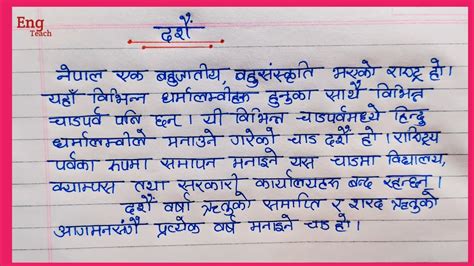 Eng
Teach
दशैं
नेपाल एक बहुजातीय, बहुसंस्कृति भएको राष्ट्र हो।
यहाँ विभिन्न धर्मालम्वीहरू हुनुका साथै विभिन्न
चाडपर्व पनि छन् । यी विभिन्न चाडपर्वमध्ये हिन्दु
धर्मालम्वीले मनाउने गरेको चाड दशैं हो। राष्ट्रिय
पर्वका रूपमा समापन मनाइने यस चाडमा विद्यालय,
क्याम्पस तथा सरकारी कार्यालयहरू बन्द रहन्छन् ।
दशैं वर्षा ऋतुको समाप्ति र शरद ऋतुको
आगमनसँगै प्रत्येक वर्ष मनाइने चाड हो।